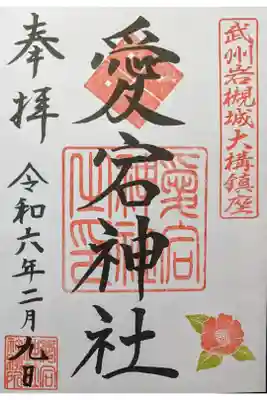 武州岩槻城大構鎮座
愛宕神社
奉拝
令和六年二月九日